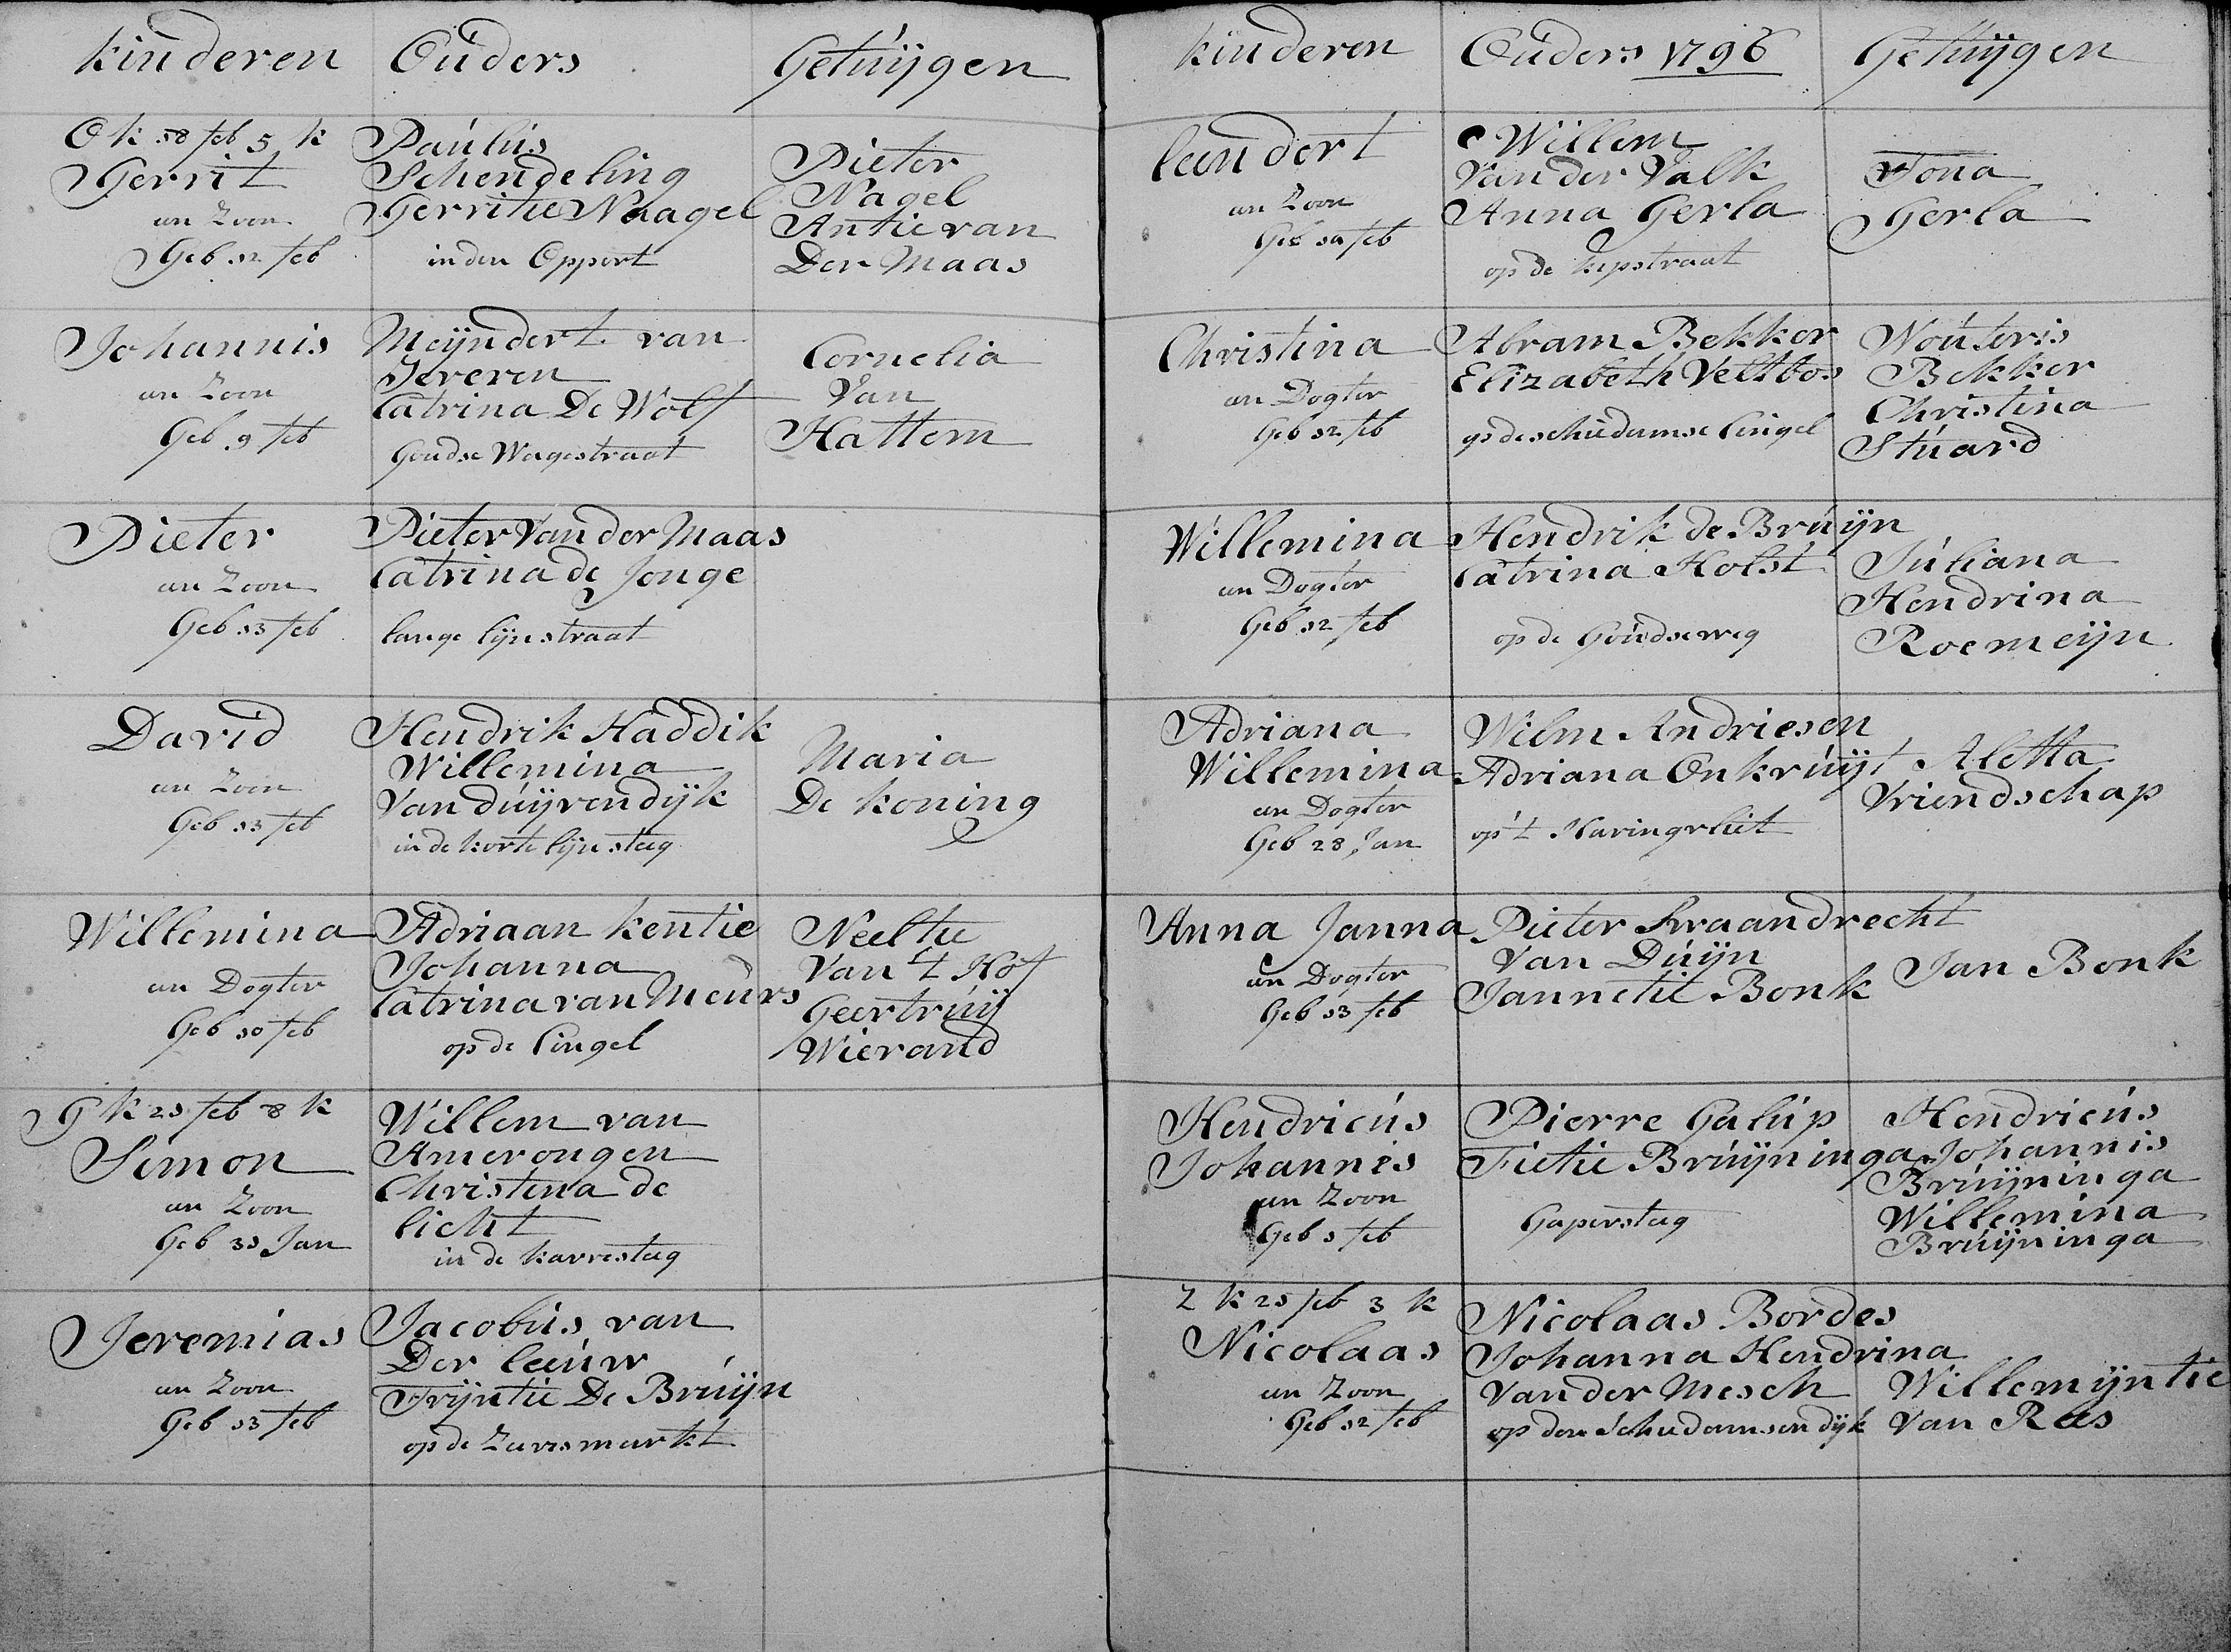 kinderen Ouders Getuijgen
O k 18 feb 5 k
Gerrit
een Zoon
Geb 12 feb
Paulus
Schendeling
Gerritie Naagel
in den Oppert
Pieter
Nagel
Antie van
Der Maas
Johannis
een Zoon
Geb 9 feb
Meijndert van
Jeveren
Catrina De Wolf
Goudse Wagestraat
Cornelia
Van
Hattem
Pieter
een Zoon
Geb 13 feb
Pieter Van der Maas
Catrina de Jonge
lange lijnstraat
David
een Zoon
Geb 13 feb
Hendrik Haddik
Willemina
Van duijvendijk
in de korte lijnsteeg
Maria
De koning
Willemina
een Dogter
Geb 10 feb
Adriaan kentie
Johanna
Catrina van Meurs
op de Cingel
Neeltie
Van 't Hof
Geertruij
Wierand
G k 21 feb 8 k
Simon
een Zoon
Geb 31 Jan
Willem van
Amerongen
Christina de
licht
in de karresteeg
Jeremias
een Zoon
Geb 13 feb
Jacobus van
Der leeuw
Trijntie De Bruijn
op de Zeevismarkt
kinderen Ouders 1796 Getuijgen
leendert
een Zoon
Geb 10 feb
Willem
Van der Valk
Anna Gerla
op de kipstraat
Tona
Gerla
Christina
een Dogter
Geb 12 feb
Abram Bekker
Elizabeth Veltbos
op de schiedamse Cingel
Wouteris
Bekker
Christina
Stuard
Willemina
een Dogter
Geb 12 feb
Hendrik de Bruijn
Catrina Holst
op de Goudseweg
Juliana
Hendrina
Roemeijn
Adriana
Willemina
een Dogter
Geb 28 Jan
Wilm Andriesen
Adriana Onkruijt
op 't Haringvliet
Aletta
Vriendschap
Anna Janna
een Dogter
Geb 13 feb
Pieter Swaandrecht
Van Duijn
Jannetie Bonk
Jan Bonk
Hendricus
Johannes
een Zoon
Geb 1 feb
Pierre Galup
Fietie Bruijninga
Gapersteeg
Hendricus
Johannis
Bruijninga
Willemina
Bruijninga
Z k 21 feb 3 k
Nicolaas
een Zoon
Geb 12 feb
Nicolaas Bordes
Johanna Hendrina
Van der Mesch
op den Schiedamsen dijk
Willemijntie
Van Rees